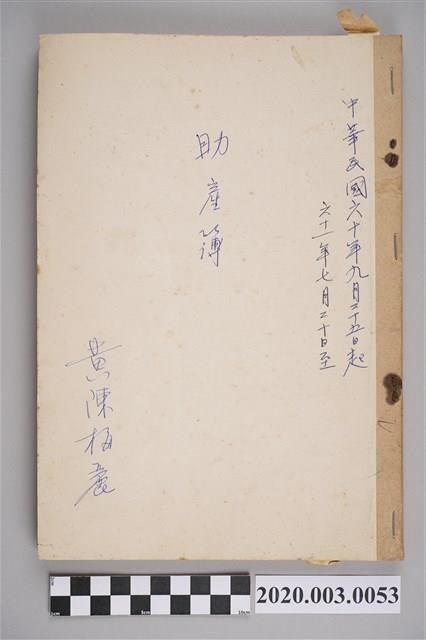 中華民國六十年九月二十五日起
六十一年七月二十日至
助產簿
黃陳梅麗
2020.003.0053